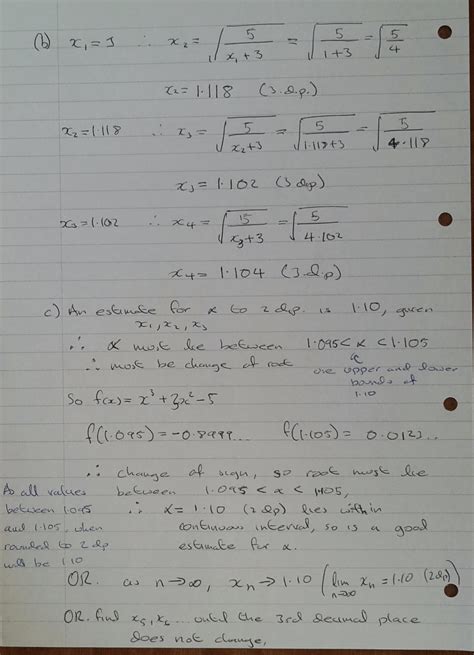 (b) x₁ = 1 ∴ x₂ = √(5/(x₁+3)) = √(5/(1+3)) = √(5/4)
x₂ = 1.118 (3.d.p.)
x₂ = 1.118 ∴ x₃ = √(5/(x₂+3)) = √(5/(1.118+3)) = √(5/4.118)
x₃ = 1.102 (3dp)
x₃ = 1.102 ∴ x₄ = √(15/(x₃+3)) = √(5/4.102)
x₄ = 1.104 (3.d.p)
c) An estimate for α to 2dp. is 1.10, given
x₁, x₂, x₃
∴ α must lie between 1.095 < α < 1.105
∴ must be change of root
use upper and lower
bounds of
1.10
So f(x) = x³ + 3x² - 5
f(1.095) = -0.8999... f(1.105) = 0.0123..
∴ change of sign, so root must lie
between 1.095 < α < 1.105,
∴ α = 1.10 (2dp) lies within
continuous interval, so is a good
estimate for α.
As all values
between 1.095
and 1.105, when
rounded to 2dp
will be 1.10
OR. as n→∞, xₙ → 1.10 (lim n→∞ xₙ = 1.10 (2dp))
OR. find x₅, x₆ ... until the 3rd decimal place
does not change.